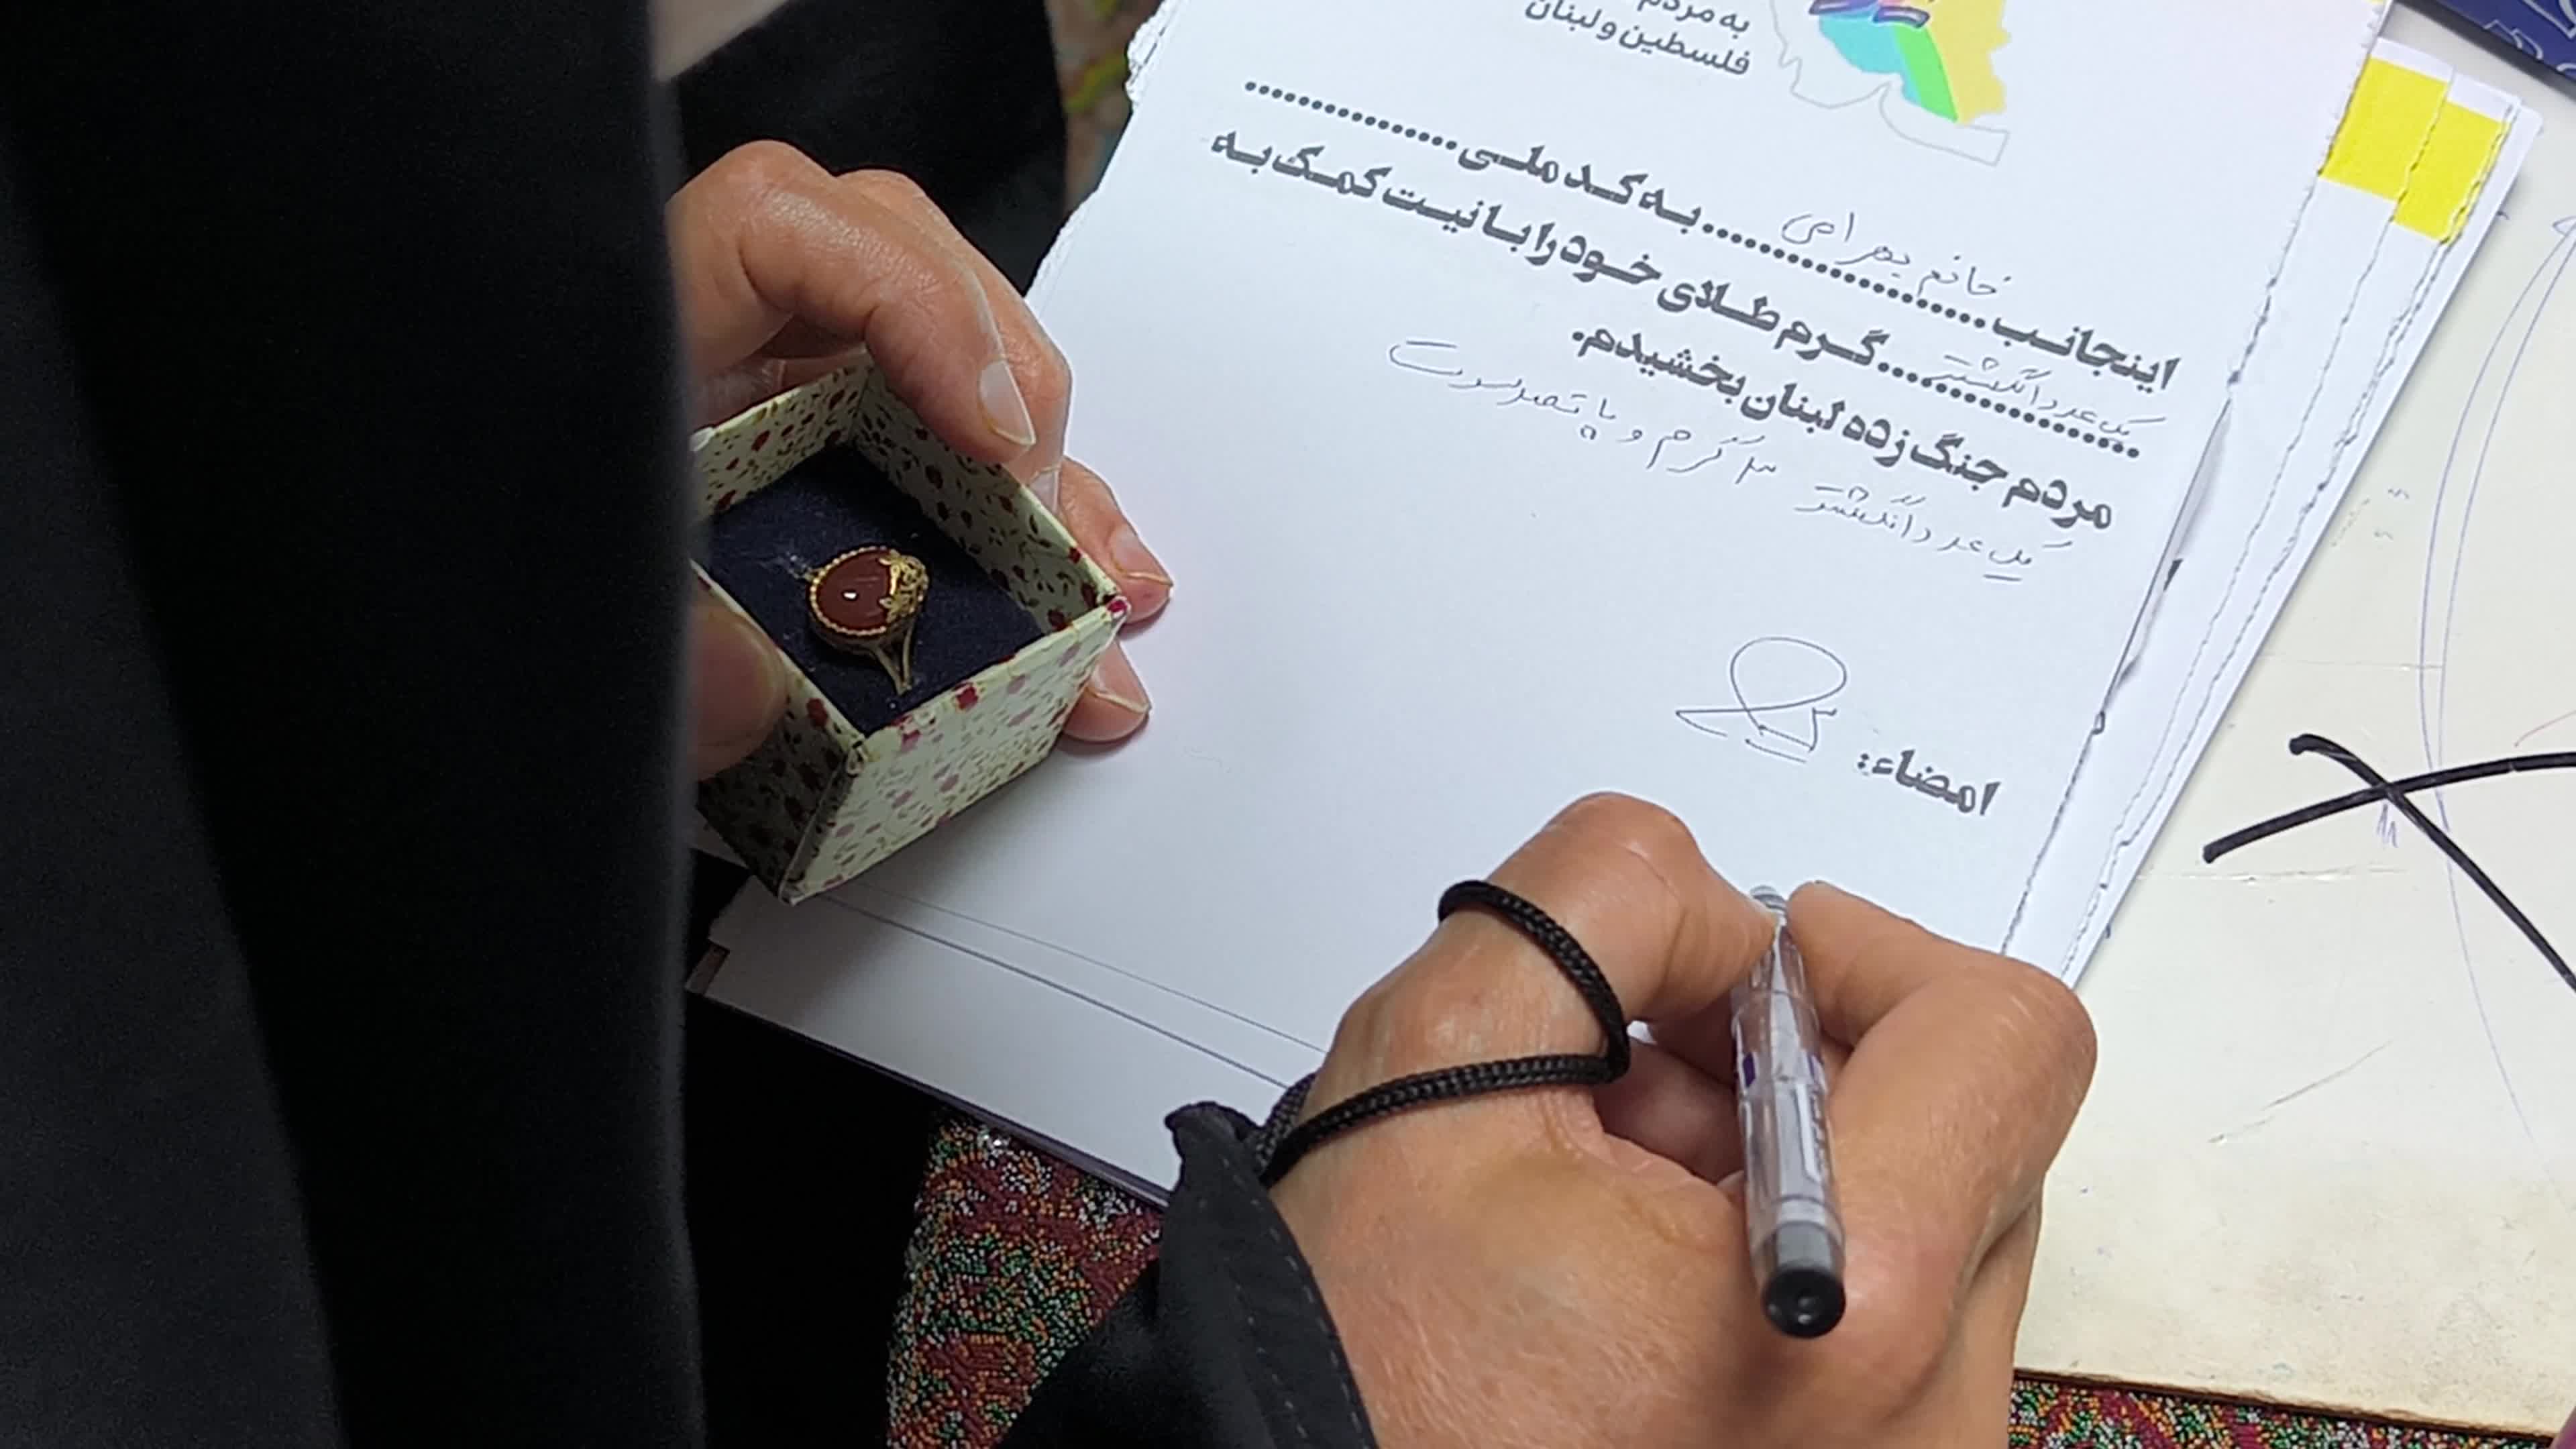 به مردم
فلسطین و لبنان
اینجانب خانم بهرامی به کد ملی
یک عدد انگشتر گرم طلای خود را با نیت کمک به
مردم جنگ زده لبنان بخشیدم.
یک عدد انگشتر ۳ گرم و
امضاء: